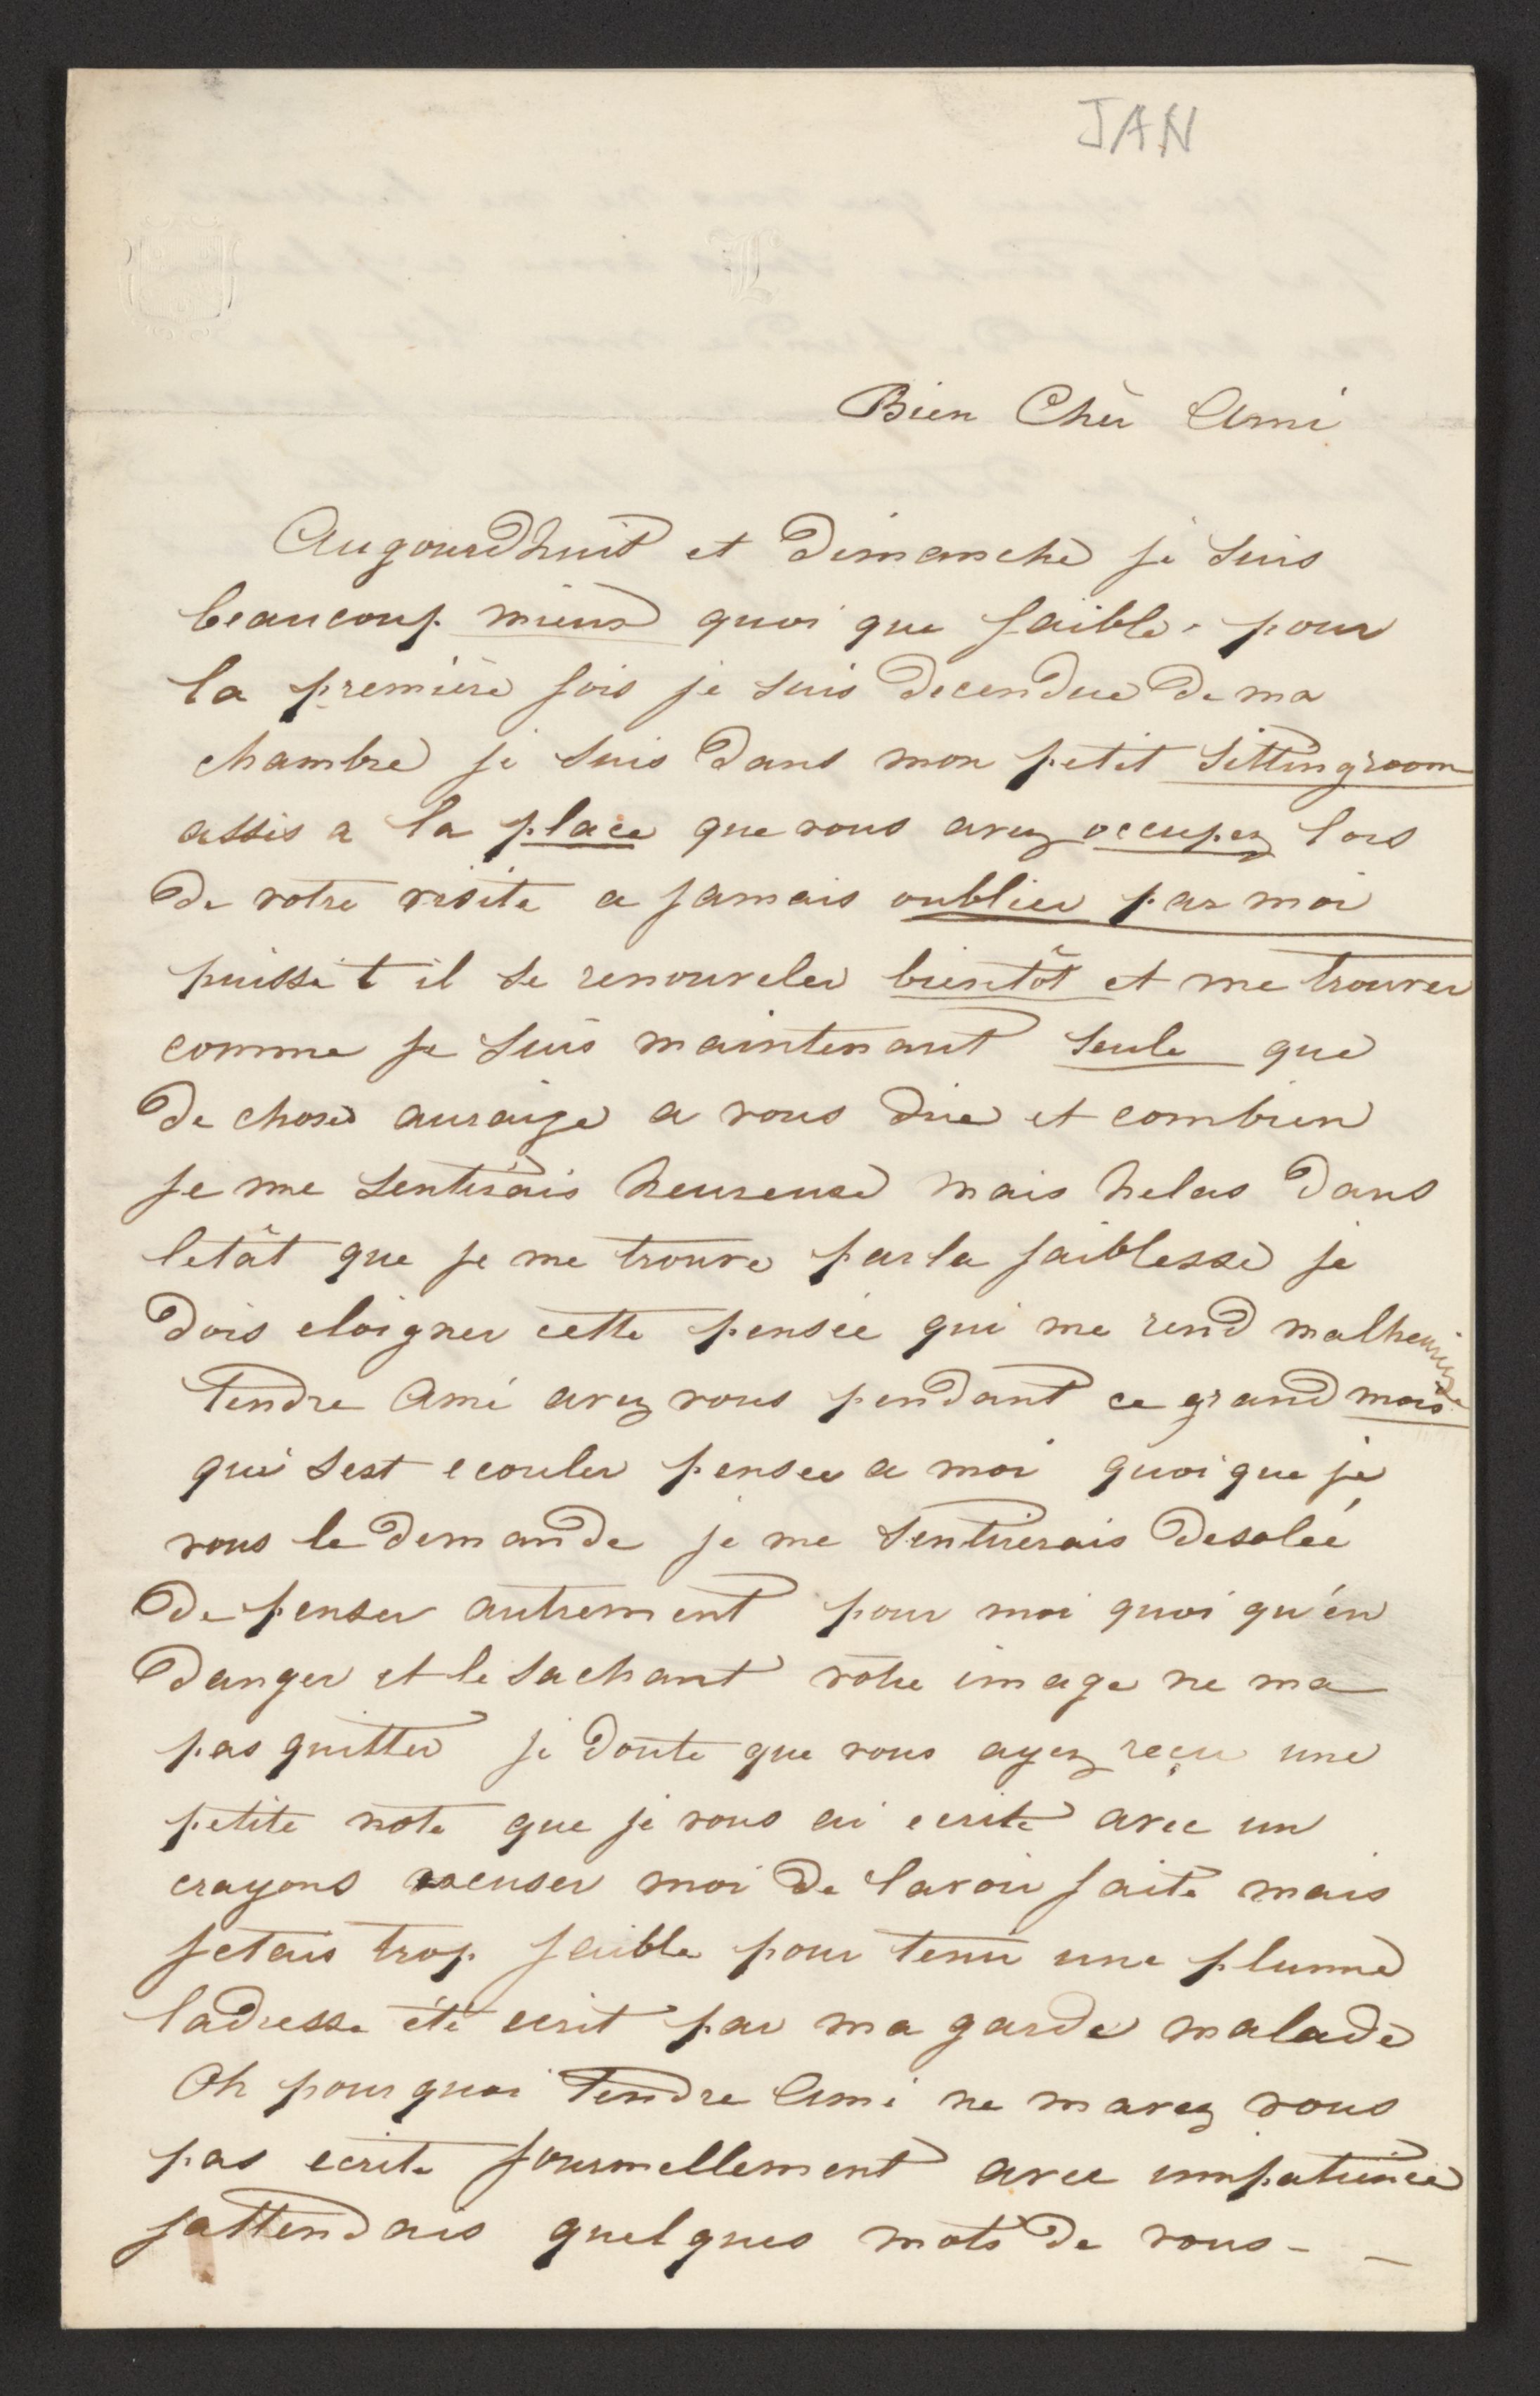 JAN
L
Bien Chèr Ami
Augourdhuit et Dimanche je suis
beaucoup mieux quoi que faible - pour
la première fois je suis decendue de ma
chambre je suis dans mon petit sittingroom
assis a la place que vous avez occupez lors
de votre visite a jamais oublier par moi
puisse t il se renouveler bientôt et me trouver
comme je suis maintenant seule que
de choses auraige a vous dire et combien
je me sentirais heureuse mais helas dans
letât que je me trouve par la faiblesse je
dois eloigner cette pensée qui me rend malheureuse
Tendre Ami avez vous pendant ce grand mois
qui sest ecouler penser a moi quoi que je
vous le demande je me sentirerais desolée
de penser autrement pour moi quoi qu'én
danger et le sachant votre image ne ma
pas quitter je doute que vous ayez reçu une
petite note que je vous ai ecrite avec un
crayons excuser moi de lavoir faite mais
jetais trop faible pour tenir une plumme
ladresse été ecrit par ma garde malade
Oh pourquoi Tendre Ami ne mavez vous
pas ecrite journellement avec impatience
jattendais quelques mots de vous - -